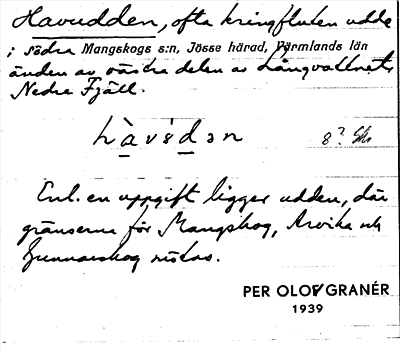 Havudden, ofta kringfluten udde
i södra Mangskogs s:n, Jösse härad, Värmlands län
änden av västra delen av Långvattnet,
Nedre Fjäll.
hàvẻdən 8?
Enl. en uppgift ligger udden, där
gränserna för Mangskog, Arvika och
Gunnarskog mötas.
PER OLOF GRANÉR
1939